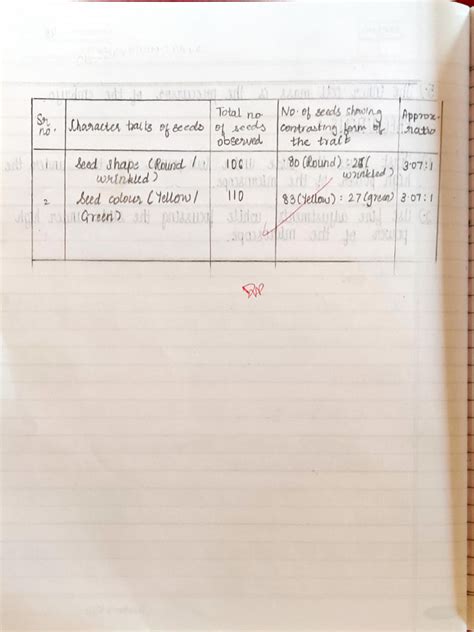 Sr no. | Character traits of seeds | Total no. of seeds observed | No. of seeds showing contrasting form of the trait | Approx. ratio
Seed shape (Round / wrinkled) | 106 | 80 (Round) : 26 ( wrinkled) | 3.07:1
2 | Seed colour (Yellow/ Green) | 110 | 83 (Yellow) : 27 (green) | 3.07:1